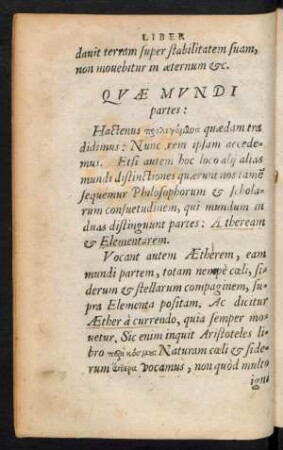 LIBER
dauit terram super stabilitatem suam,
non mouebitur in æternum &c.
QVÆ MVNDI
partes:
Hactenus προλεγόμενα quædam tra
didimus: Nunc rem ipsam accede-
mus. Etsi autem hoc loco alij alias
mundi distinctiones quærunt nos tamē
sequemur Philosophorum & schola-
rum consuetudinem, qui mundum in
duas distinguunt partes: Ætheream
& Elementarem.
Vocant autem Ætherem, eam
mundi partem, totam nempè cœli, si-
derum & stellarum compaginem, su-
pra Elementa positam. Ac dicitur
Æther à currendo, quia semper mo-
uetur. Sic enim inquit Aristoteles li-
bro περὶ κόσμου Naturam cœli & side-
rum vocamus, non quòd multo
igni